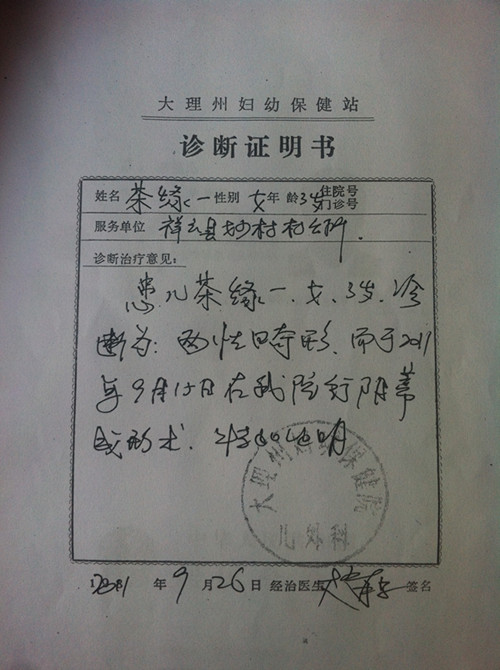 大理州妇幼保健站
诊断证明书
姓名 茶缘一 性别 女 年龄 3岁 住院号 门诊号
服务单位 祥云县 村 村公所.
诊断治疗意见:
患儿茶缘一.女.3岁.诊
断为: 两性畸形.而于2011
年9月15日在我院行阴蒂
成形术.特此证明
大理州妇幼保健院
儿外科
年9月26日 经治医生 签名